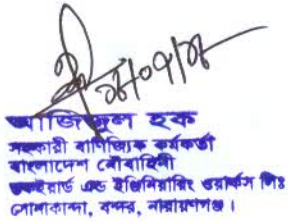 আজিজুল হক
সহকারী বাণিজ্যিক কর্মকর্তা
বাংলাদেশ নৌবাহিনী
ডকইয়ার্ড এন্ড ইঞ্জিনিয়ারিং ওয়ার্কস লিঃ
সোনাকান্দা, বন্দর, নারায়ণগঞ্জ।